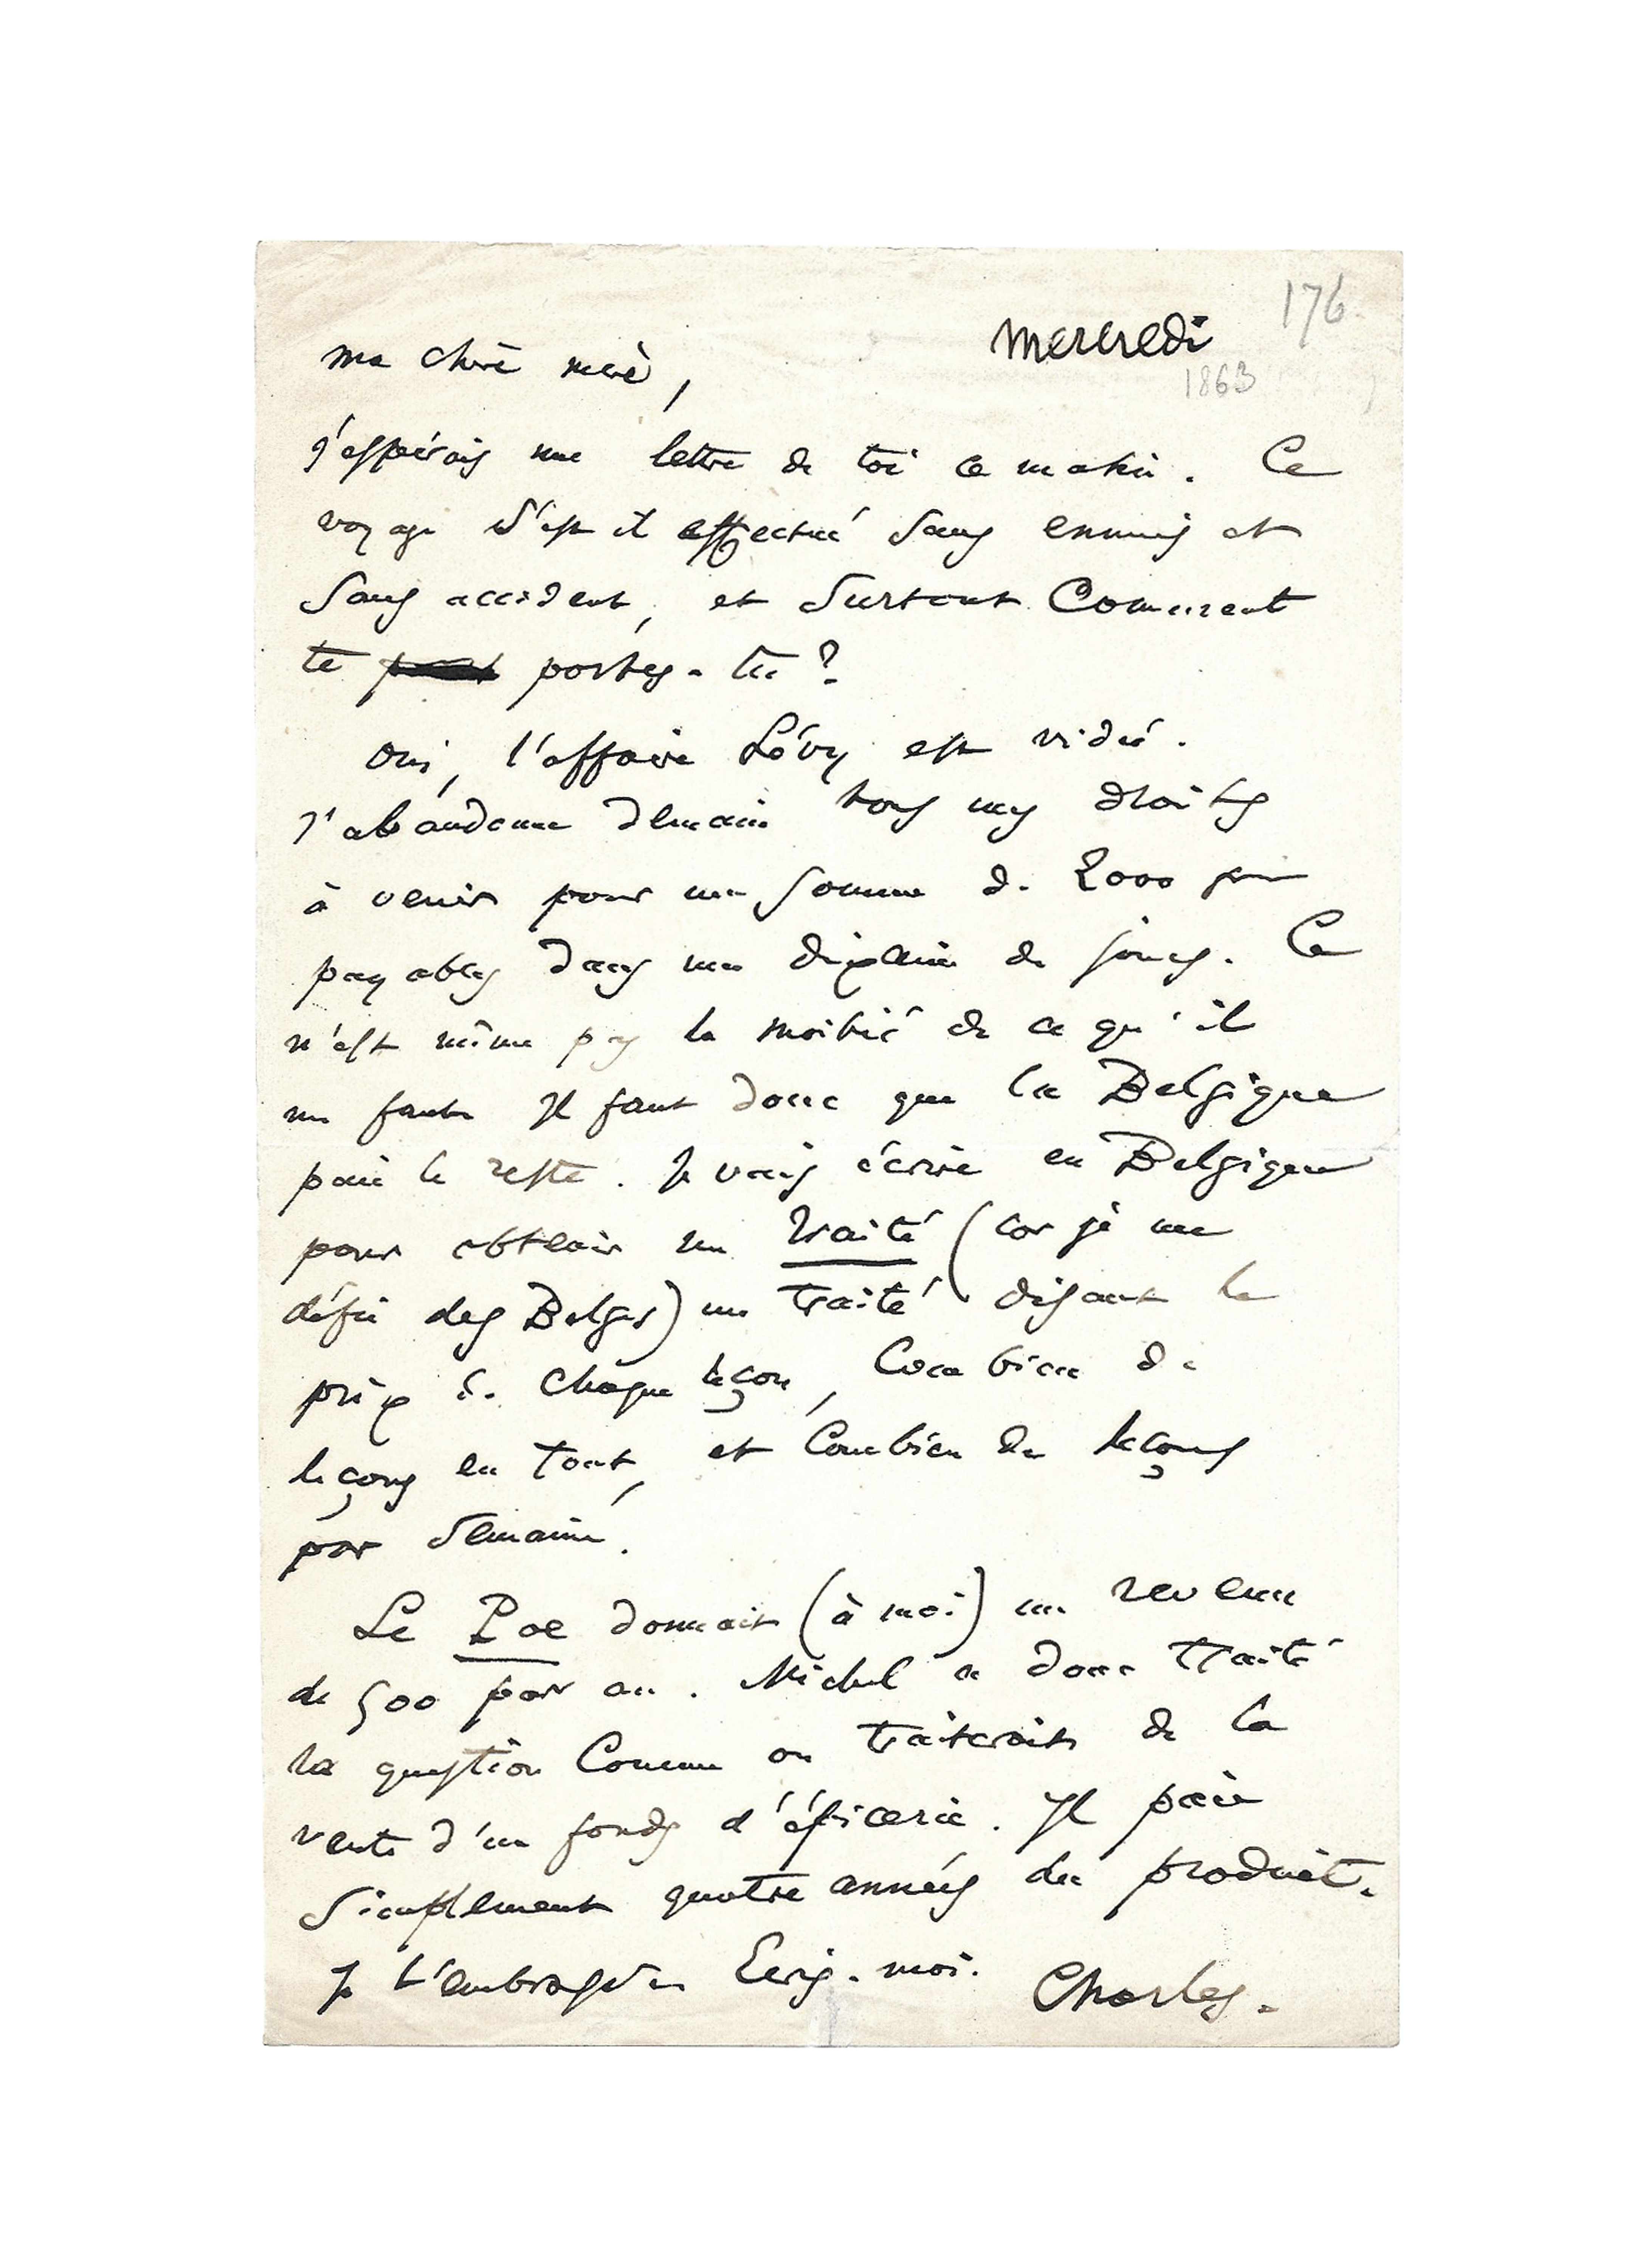 176
mercredi
1863
ma chère mère,
j'espérais une lettre de toi ce matin. Ce
voyage s'est il effectué sans ennuis et
sans accident, et surtout comment
te portes-tu ?
Oui, l'affaire Lévy est vidée.
J'abandonne demain tous mes droits
à venir pour une somme de 2000 fr
payables dans une dixaine de jours. Ce
n'est même pas la moitié de ce qu'il
me faut. Il faut donc que la Belgique
paie le reste. Je vais écrire en Belgique
pour obtenir un traité (car je me
défie des Belges) un traité disant le
prix de chaque leçon, combien de
leçons en tout, et combien de leçons
par semaine.
Le Poe donnait (à moi) un revenu
de 500 par an. Michel a donc traité
la question comme on traiterait de la
vente d'un fonds d'épicerie. Il paie
simplement quatre années du produit.
Je t'embrasse. Ecris-moi.
Charles.